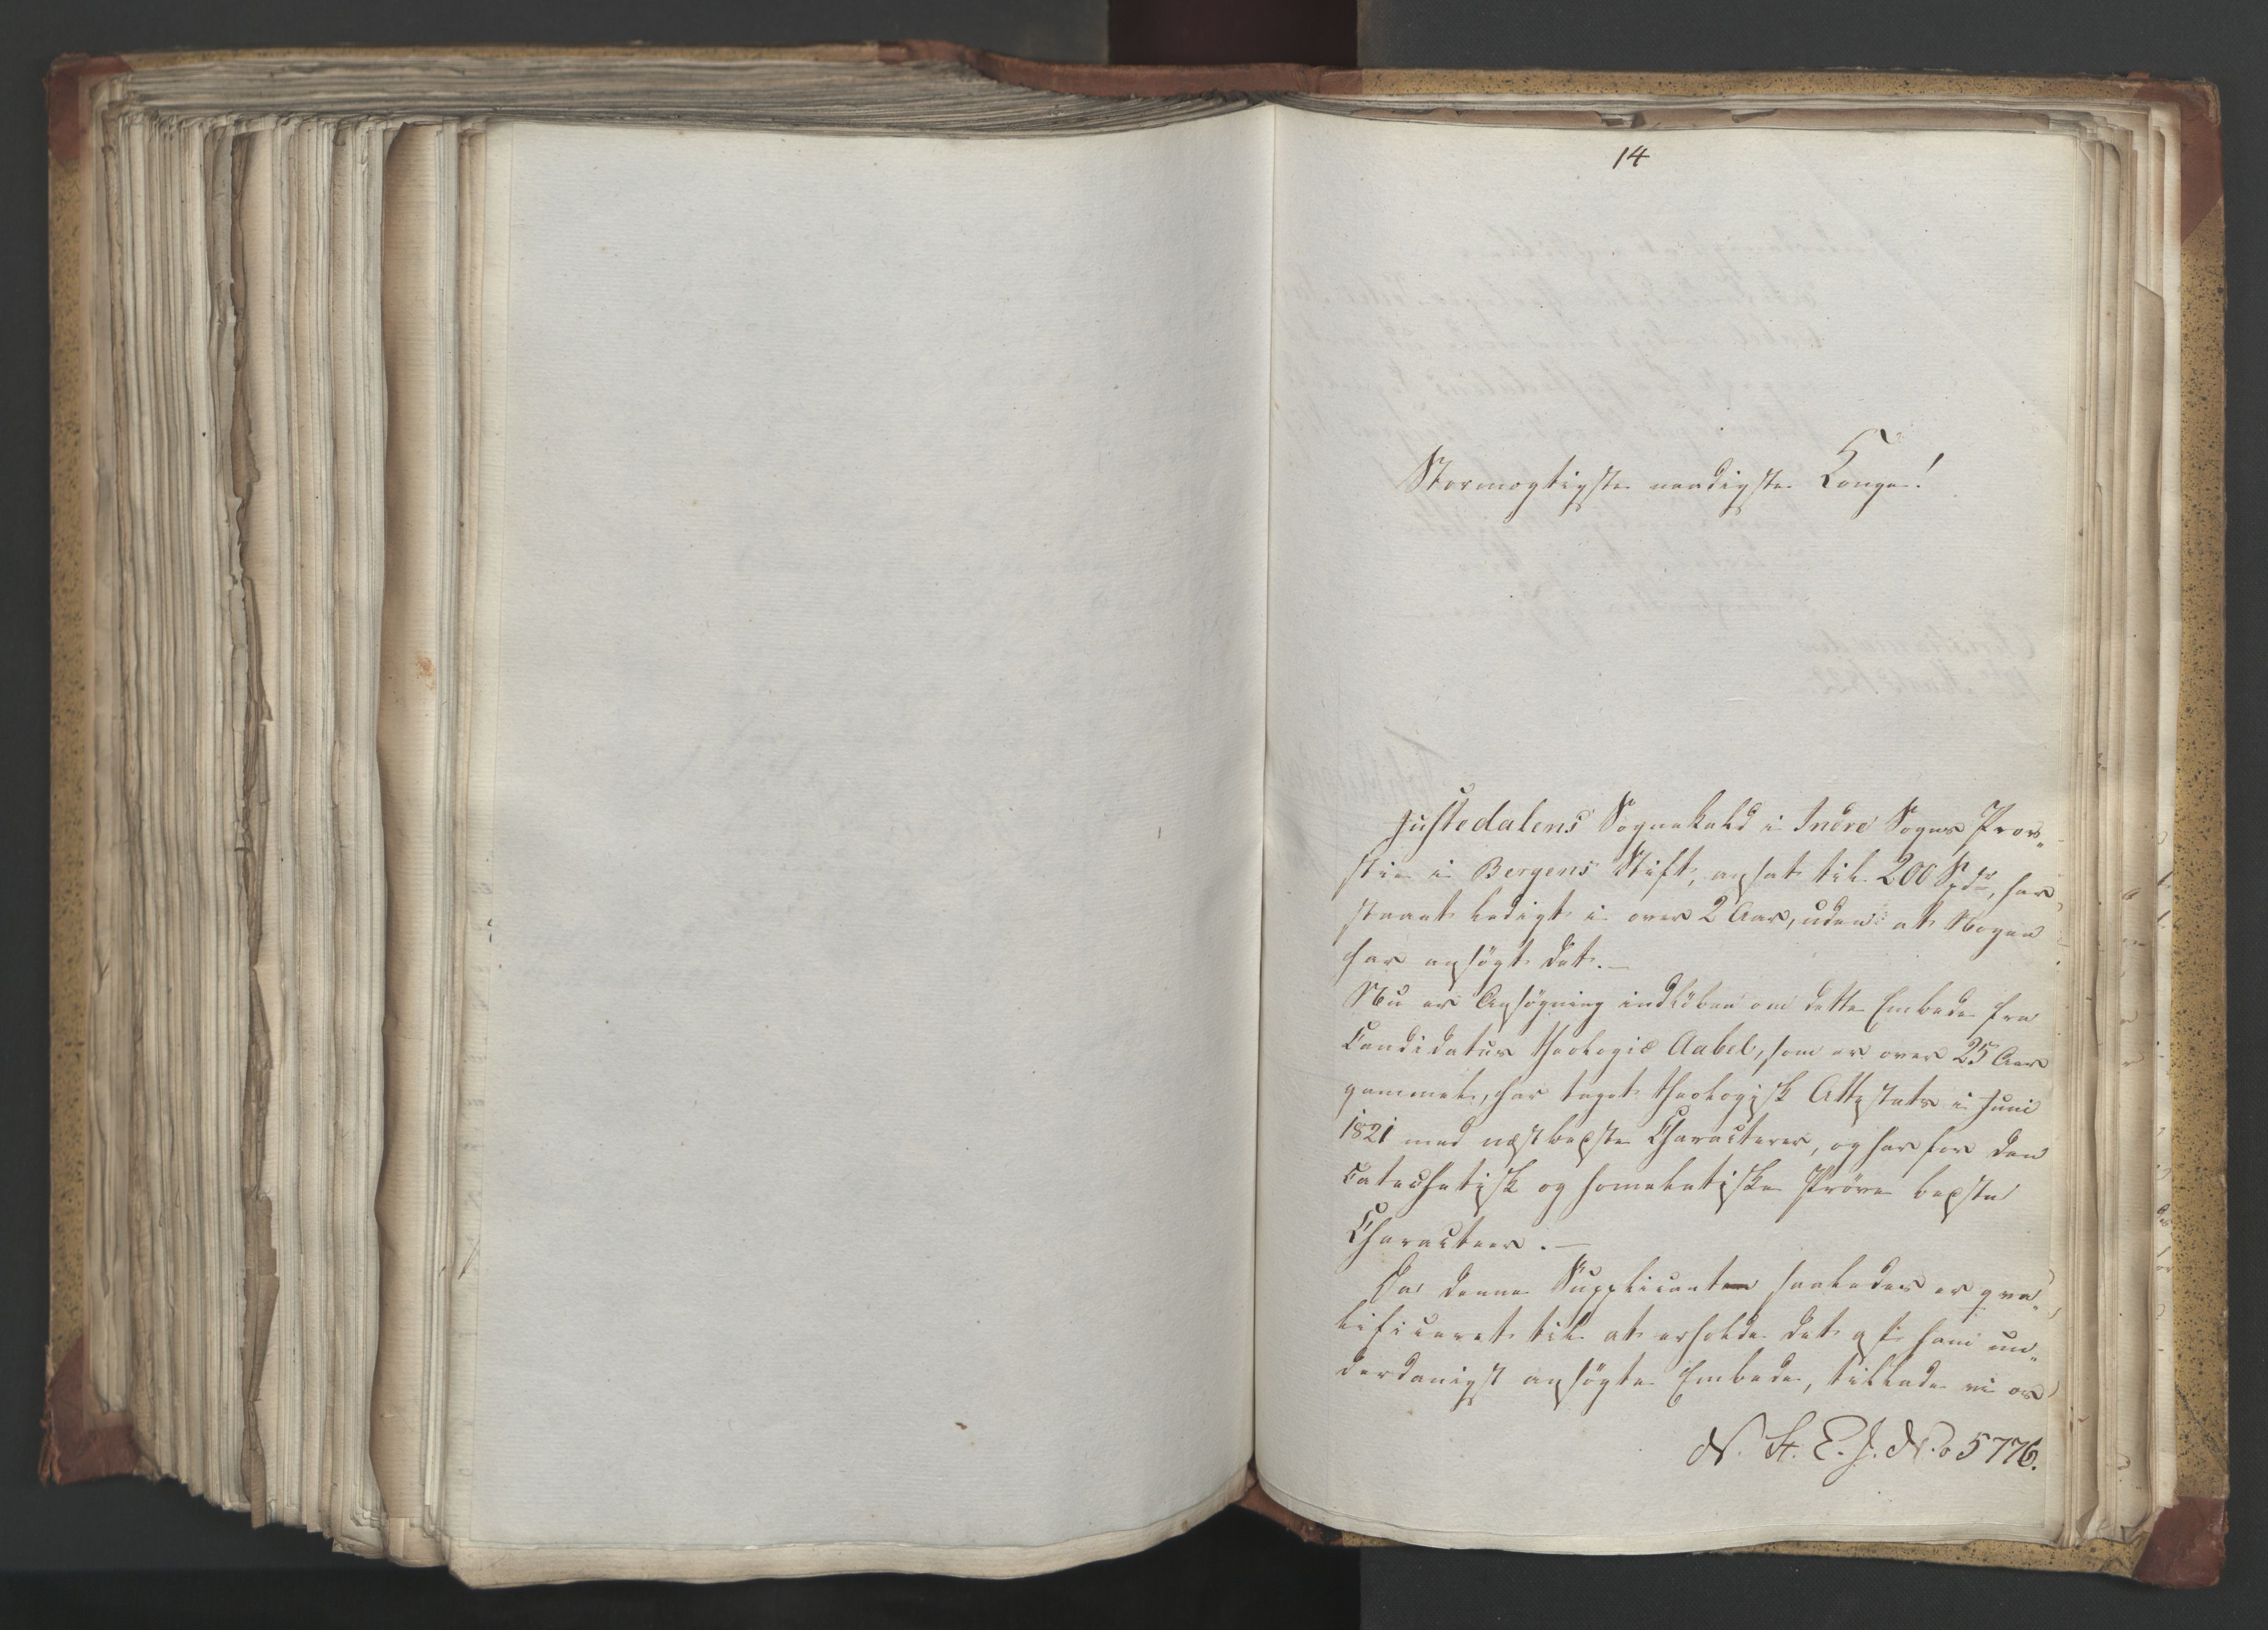 14
Stormægtigste naadigste Konge!
Justedalens Sognekald i Indre Sogns Prov„
stie i Bergens Stift, ansat til 200 Spdr, har
staaet ledigt i over 2 Aar, uden at Nogen
har ansøgt det.—
Nu er Ansøgning indløben om dette Embede fra
Candidatus theologiæ Aabel, som er over 25 Aar
gammel, har taget theologisk Attestats i Juni
1821 med næstbedste Characteer, og har for den
catechetisk og homeletiske Prøve bedste
Characteer.—
Da denne Supplicant saaledes er qva„
lificeret til at erholde det af ham un„
derdanigst ansøgte Embede, tillade vi os
N. St. E. J. No 5776.